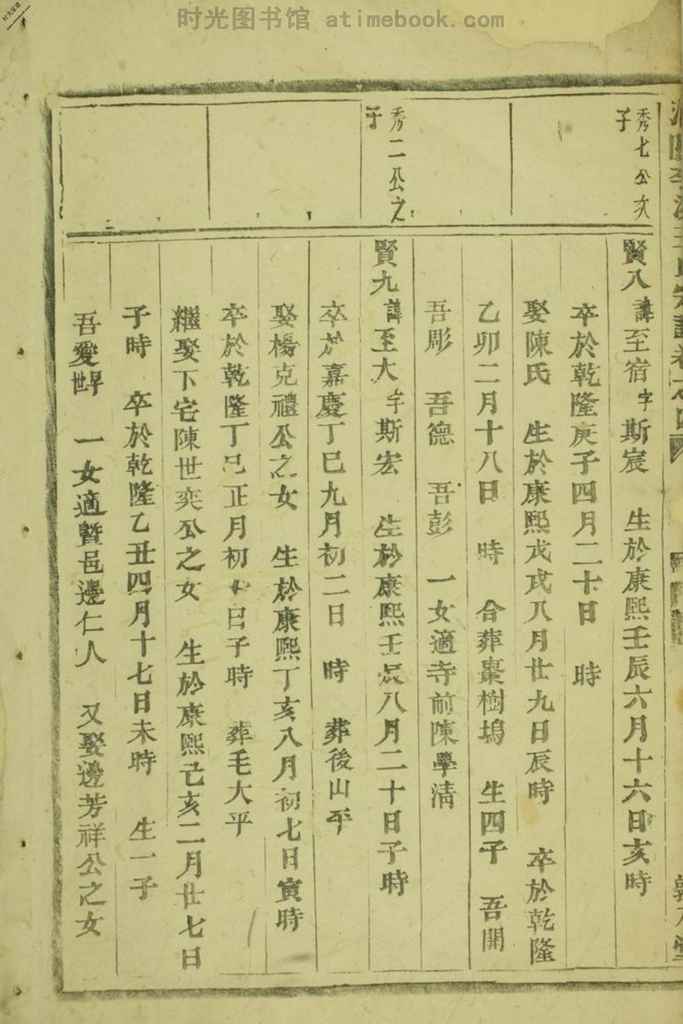 时光图书馆 atimebook.com
秀七公次
子
賢八諱至宿字斯宸 生於康熙壬辰六月十六日亥時
卒於乾隆庚子四月二十日 時
娶陳氏 生於康熙戊戌八月廿九日辰時 卒於乾隆
乙卯二月十八日 時 合葬棗樹塢 生四子 吾開
吾彫 吾德 吾彭 一女適寺前陳學清
秀二公之
子
賢九諱至大字斯宏 生於康熙壬辰八月二十日子時
卒於嘉慶丁巳九月初二日 時 葬後山平
娶楊克禮公之女 生於康熙丁亥八月初七日寅時
卒於乾隆丁巳正月初 日子時 葬毛大平
繼娶下宅陳世奕公之女 生於康熙己亥二月廿七日
子時 卒於乾隆乙丑四月十七日未時 生一子
吾愛 一女適暨邑邊仁人 又娶邊芳祥公之女